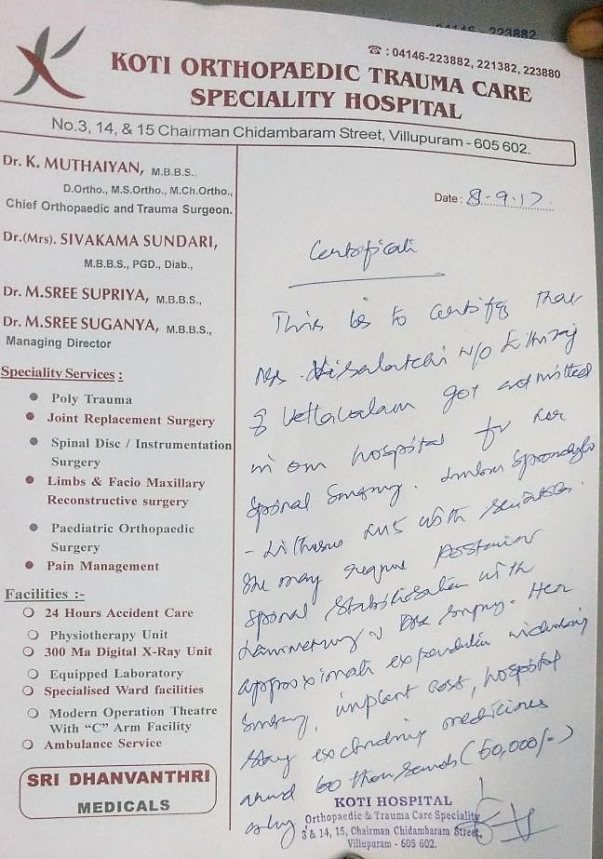 04146 - 223882
☎ : 04146-223882, 221382, 223880
KOTI ORTHOPAEDIC TRAUMA CARE
SPECIALITY HOSPITAL
No.3, 14, & 15 Chairman Chidambaram Street, Villupuram - 605 602.
Dr. K. MUTHAIYAN, M.B.B.S.,
D.Ortho., M.S.Ortho., M.Ch.Ortho.,
Chief Orthopaedic and Trauma Surgeon.
Dr.(Mrs). SIVAKAMA SUNDARI,
M.B.B.S., PGD., Diab.,
Dr. M.SREE SUPRIYA, M.B.B.S.,
Dr. M.SREE SUGANYA, M.B.B.S.,
Managing Director
Speciality Services :
Poly Trauma
Joint Replacement Surgery
Spinal Disc / Instrumentation
Surgery
Limbs & Facio Maxillary
Reconstructive surgery
Paediatric Orthopaedic
Surgery
Pain Management
Facilities :-
24 Hours Accident Care
Physiotherapy Unit
300 Ma Digital X-Ray Unit
Equipped Laboratory
Specialised Ward facilities
Modern Operation Theatre
With "C" Arm Facility
Ambulance Service
SRI DHANVANTHRI
MEDICALS
Date : 8-9-17
Certificate
This is to certify that
W/O
of Vettavalam got admitted
in our hospital for her
spinal surgery. Lumbar Spondylo
- with sciatica.
She may require posterior
spinal stabilisation with
Disc surgery. Her
approximate expenditure including
surgery, implant cost, hospital
stay excluding medicines
around 60 thousands (60,000/-)
only
KOTI HOSPITAL
Orthopaedic & Trauma Care Speciality
3 & 14, 15, Chairman Chidambaram Street,
Villupuram - 605 602.